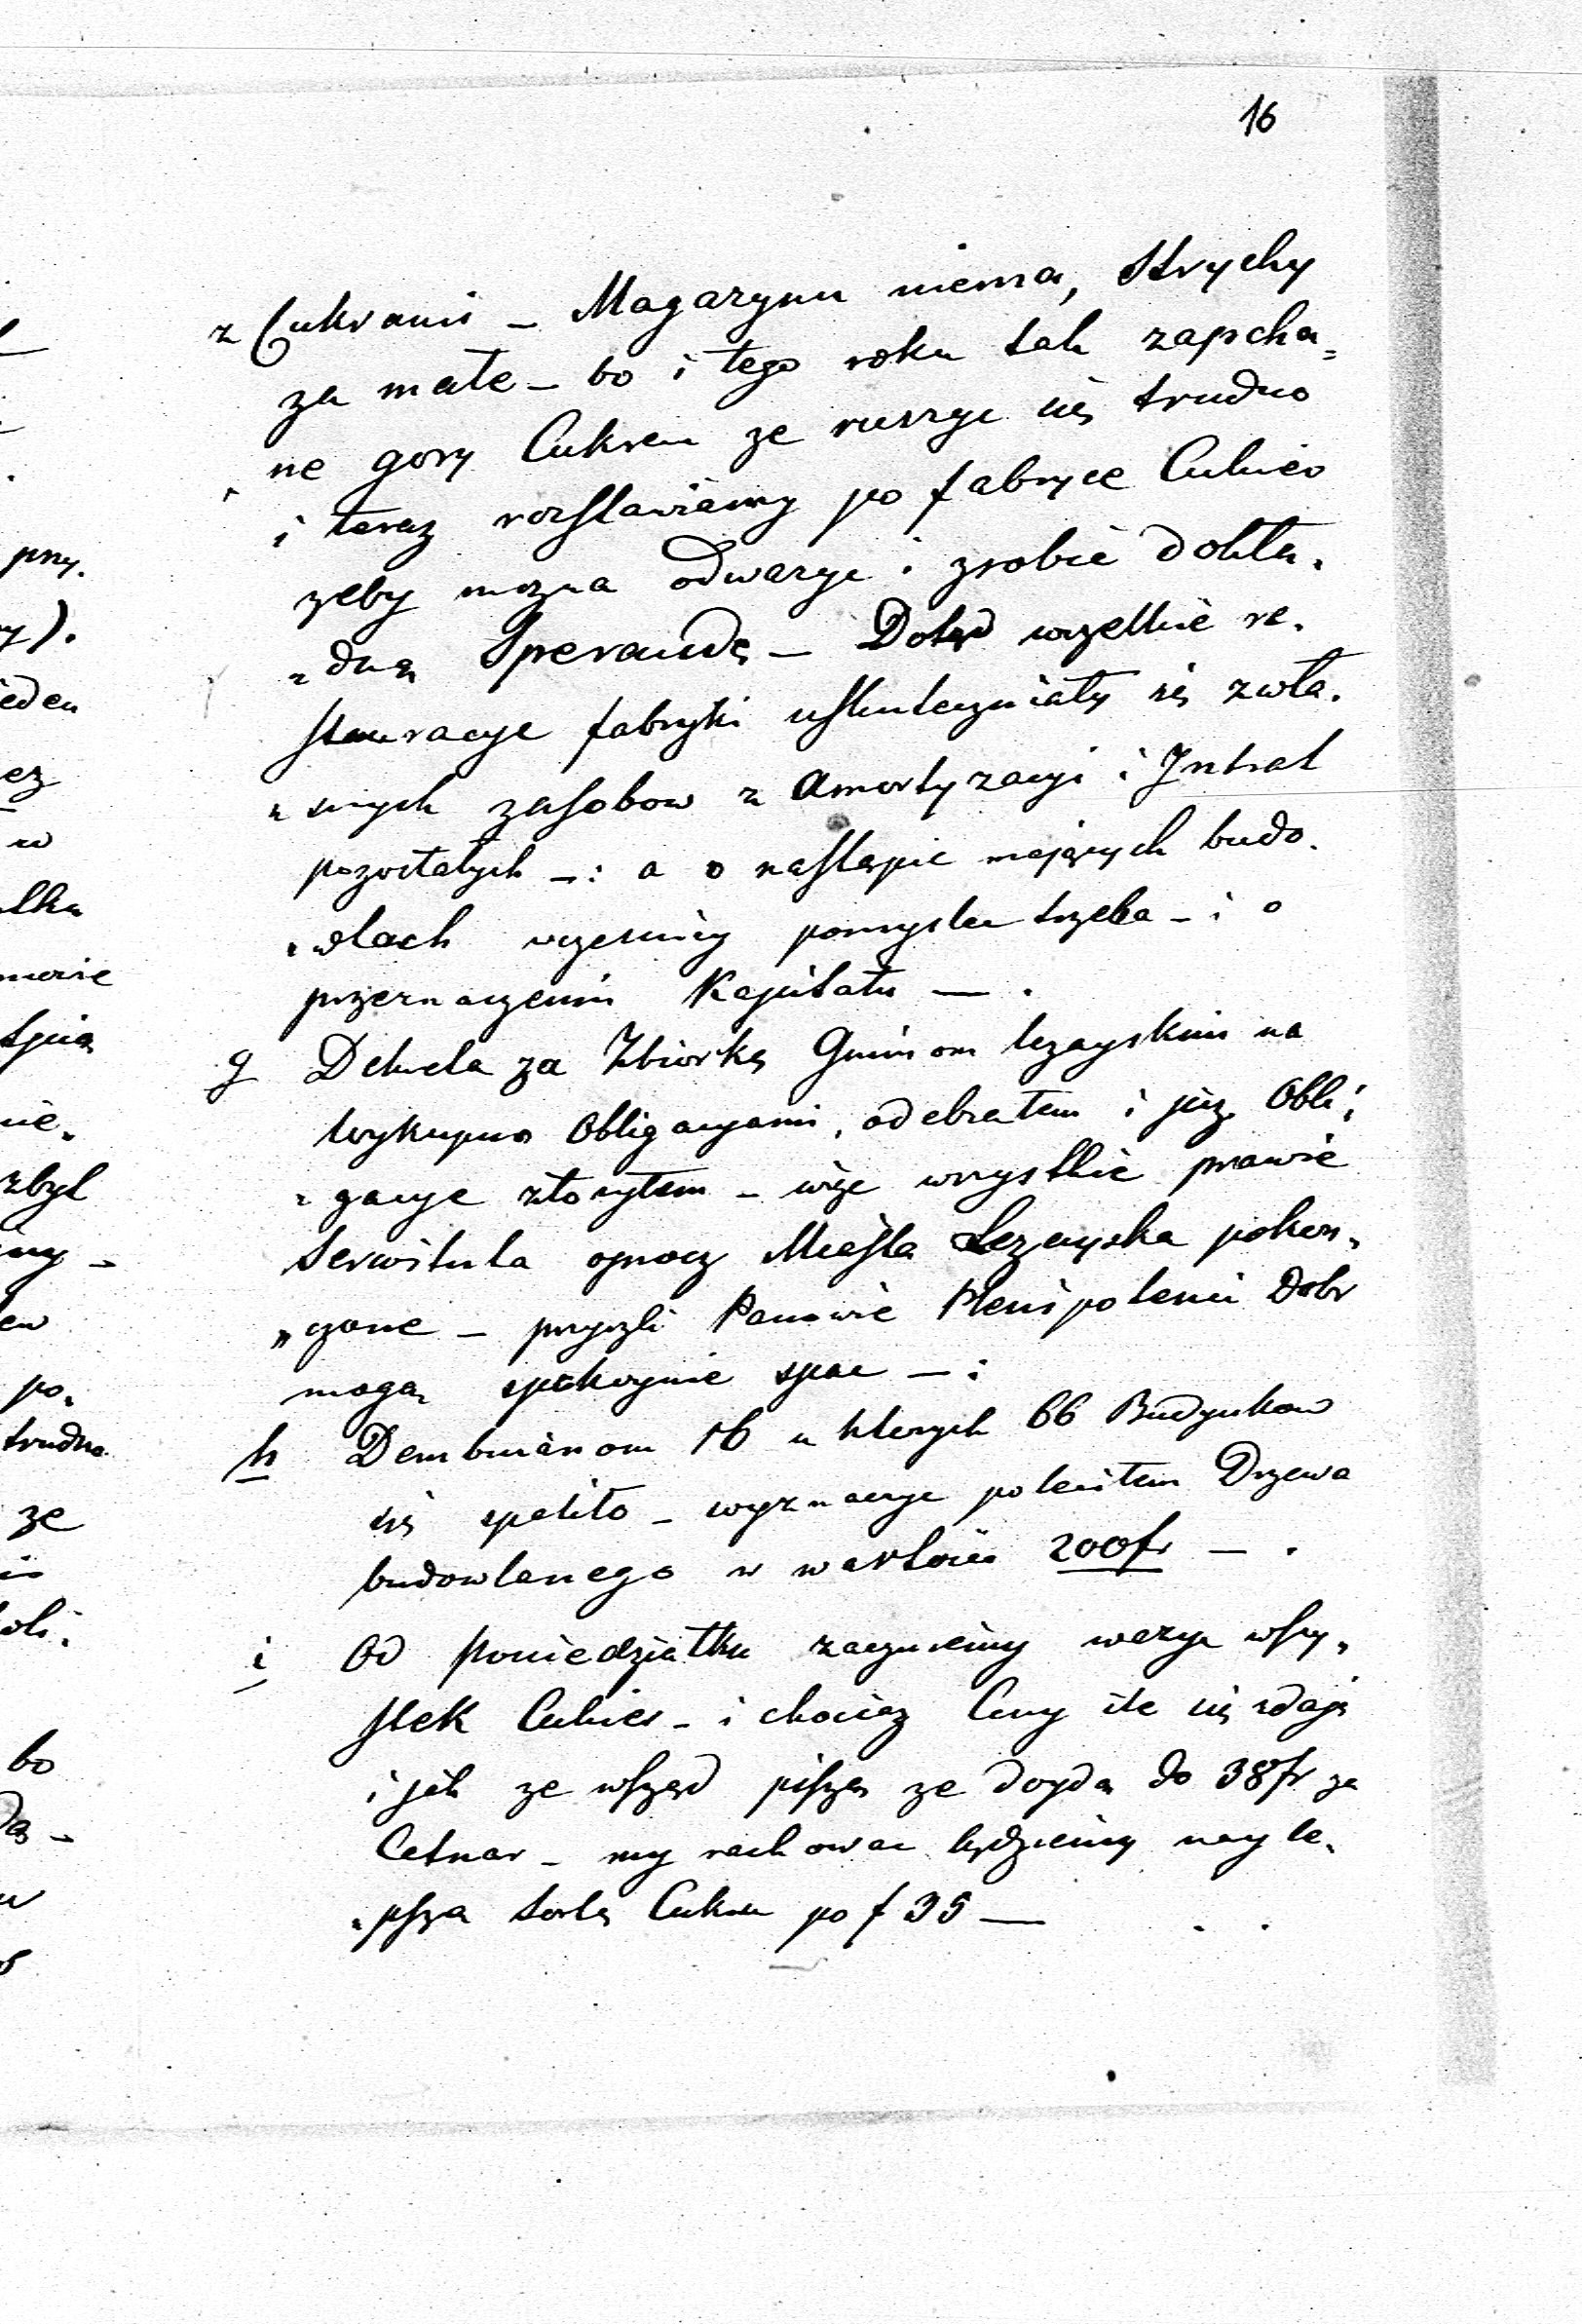 16
z Cukrami – Magazynu niema, Strychy
za małe – bo i tego roku tak zapcha=
ne gory Cukrem ze ruszyc się trudno
i teraz rozstawiamy po fabryce Cukier
zeby mozna odwazyc i zrobic dokła„
„dną Sperandę – Dotąd wszelkie re„
stauracye fabryki uskuteczniały się z wła„
„snych zasobow z Amortyzacyi i Intrat
pozostałych –: a o nastąpic mających budo„
„wlach wczesniey pomyslec trzeba – i o
przeznaczeniu Kapitału — .
g Dekreta za Zbiorkę Gminom lezayskim na
wykupno Obligacyami, odebrałem i juz Obli„
„gacye złozyłem – więc wszystkie prawie
Serwituta oprocz Miasta Lezayska pokon„
„czone – przyszli Panowie Plenipotenci Dobr
mogą spokoynie spac – :
h Dembnianom 16 u ktorych 66 Budynkow
się spaliło – wyznaczyc poleciłem Drzewa
budowlanego w wartosci 200fr – .
i Od Poniedziałku zaczniemy wazyc wszy„
stek Cukier – i chociaz Ceny ile się zdaje
i jak ze wsząd piszą ze doydą do 38fr za
Cetnar – my rachowac będziemy nayle„
„pszą sortę Cukru po f 35 —